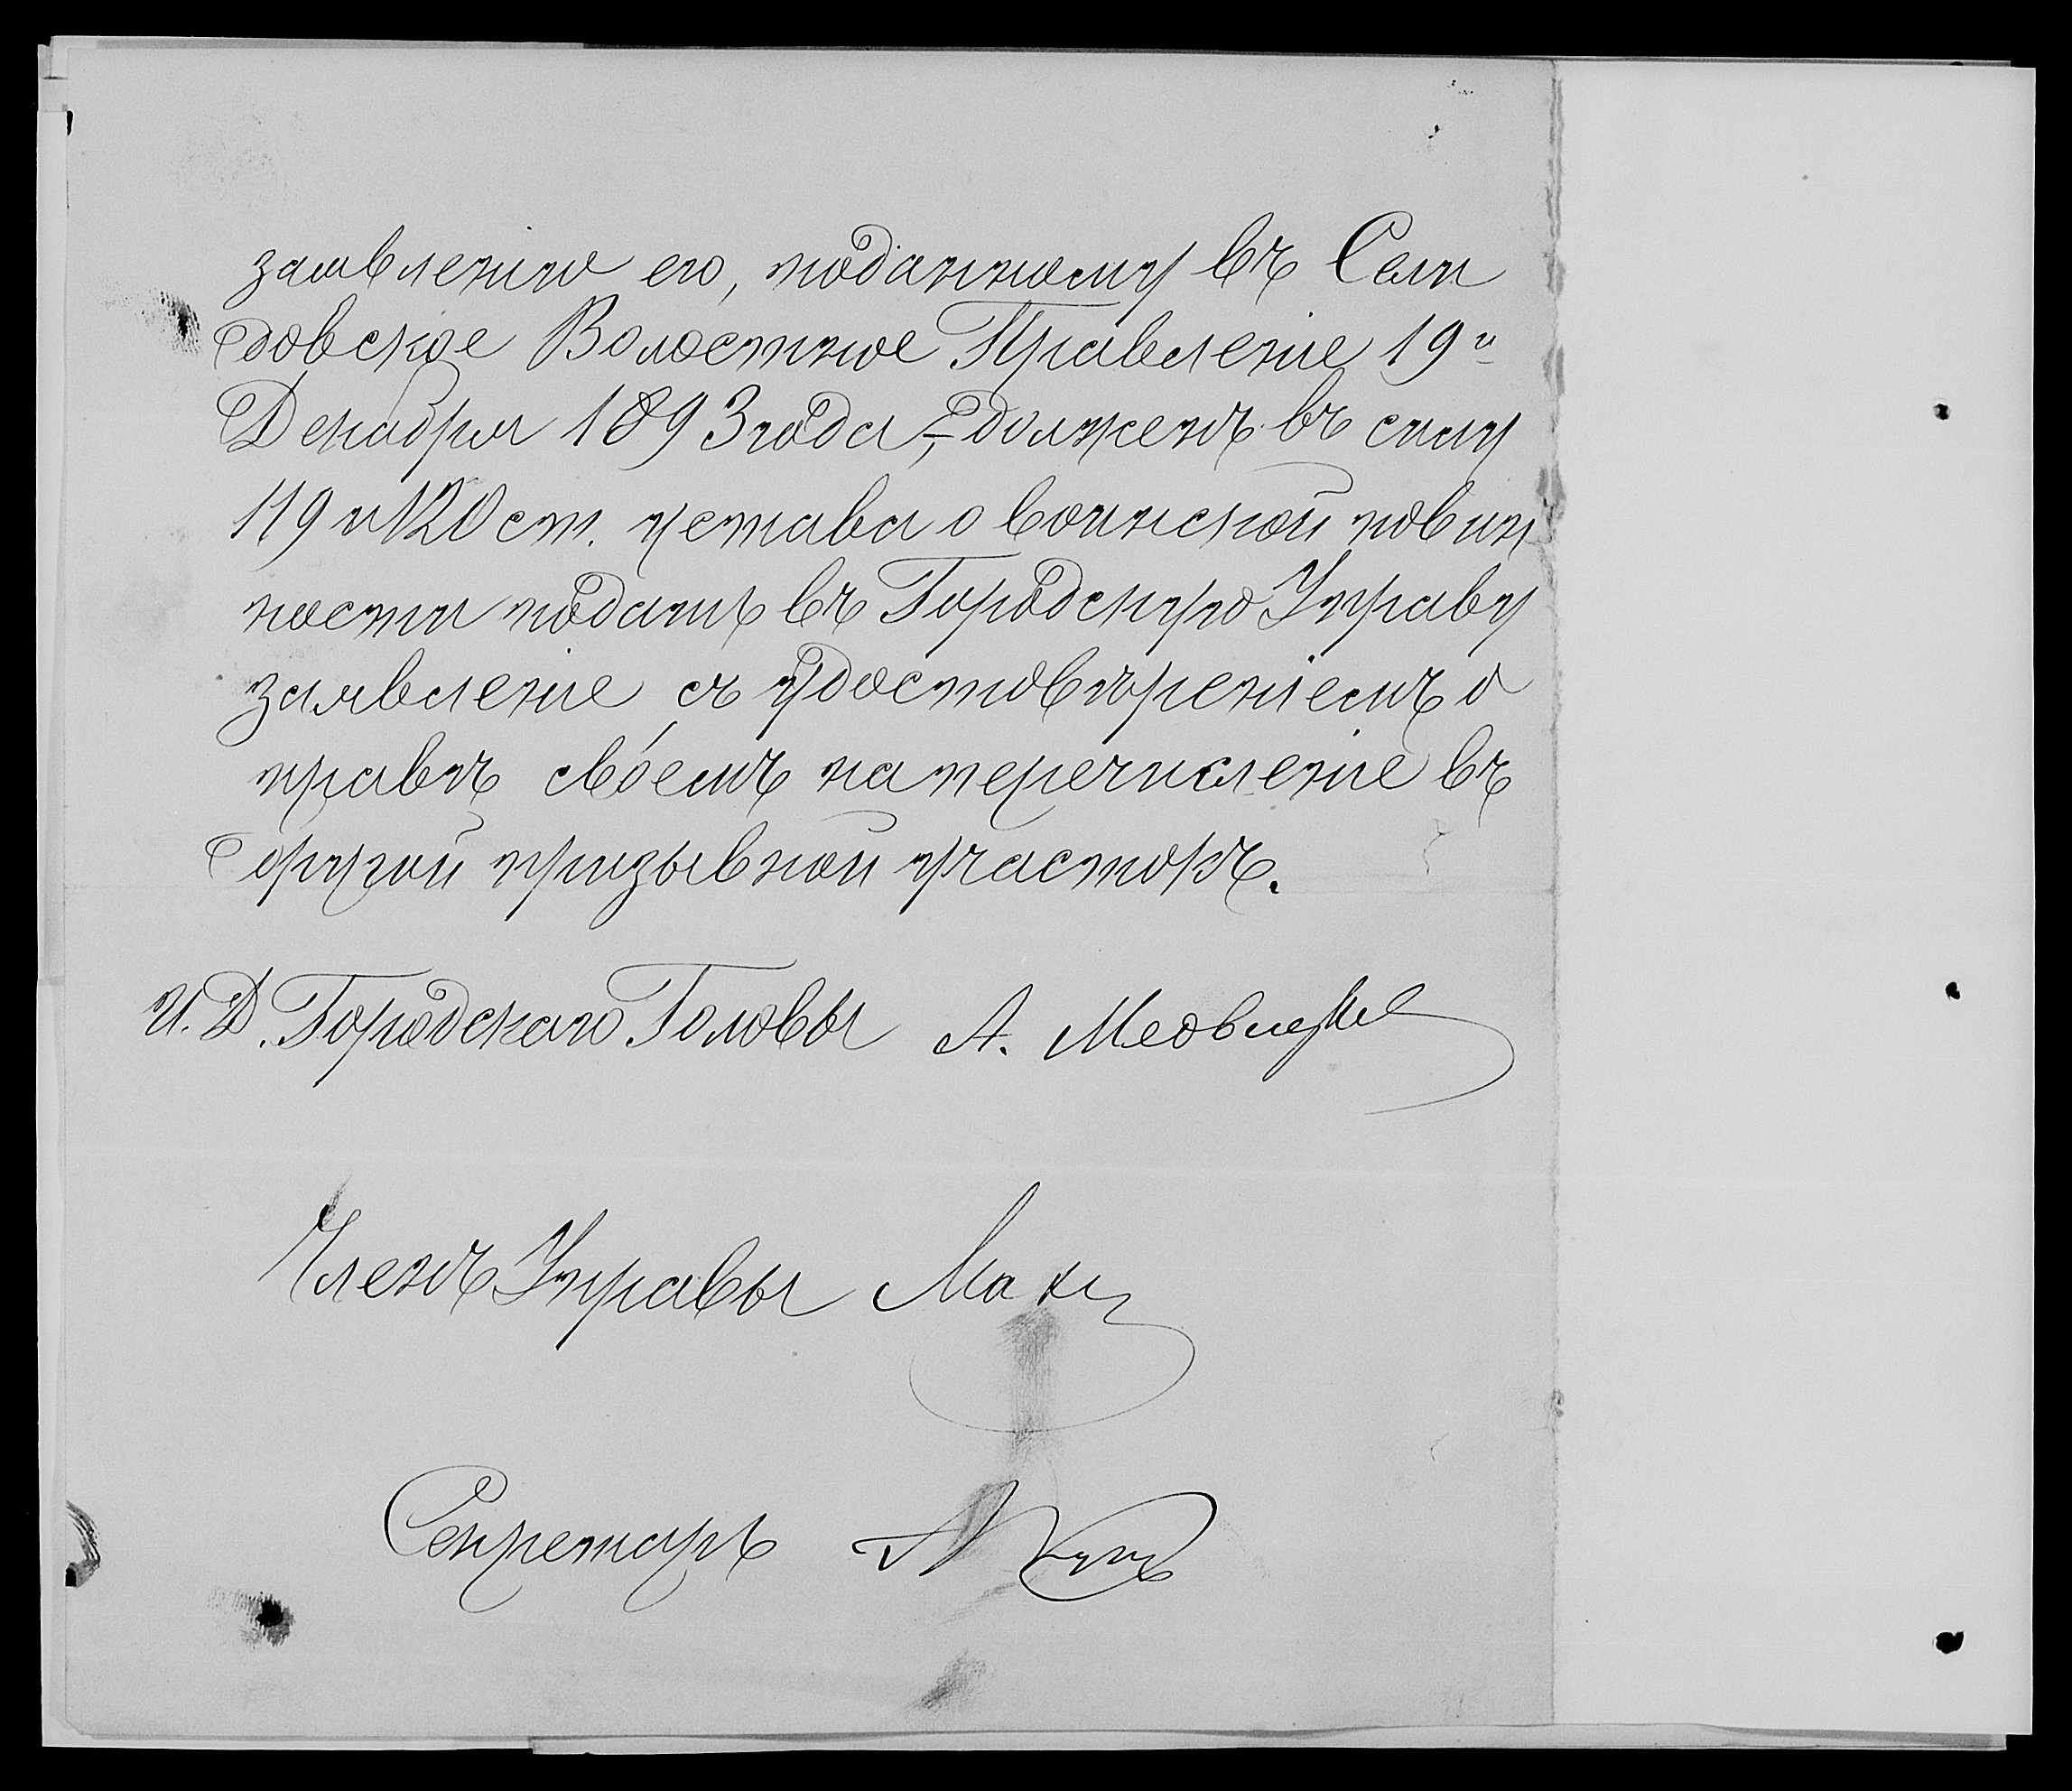 заявленію его, поданному въ Сам
довское Волостное Правленіе 19го
Декабря 1893 года, – долженъ въ силу
119 и 120 ст. устава о воинской повин
ности подать въ Городскую Управу
заявленіе съ удостовѣреніемъ о
правѣ своемъ на перечисленіе въ
другой призывной участокъ.
И. Д. Городскаго Головы А.
Членъ Управы
Секретарь